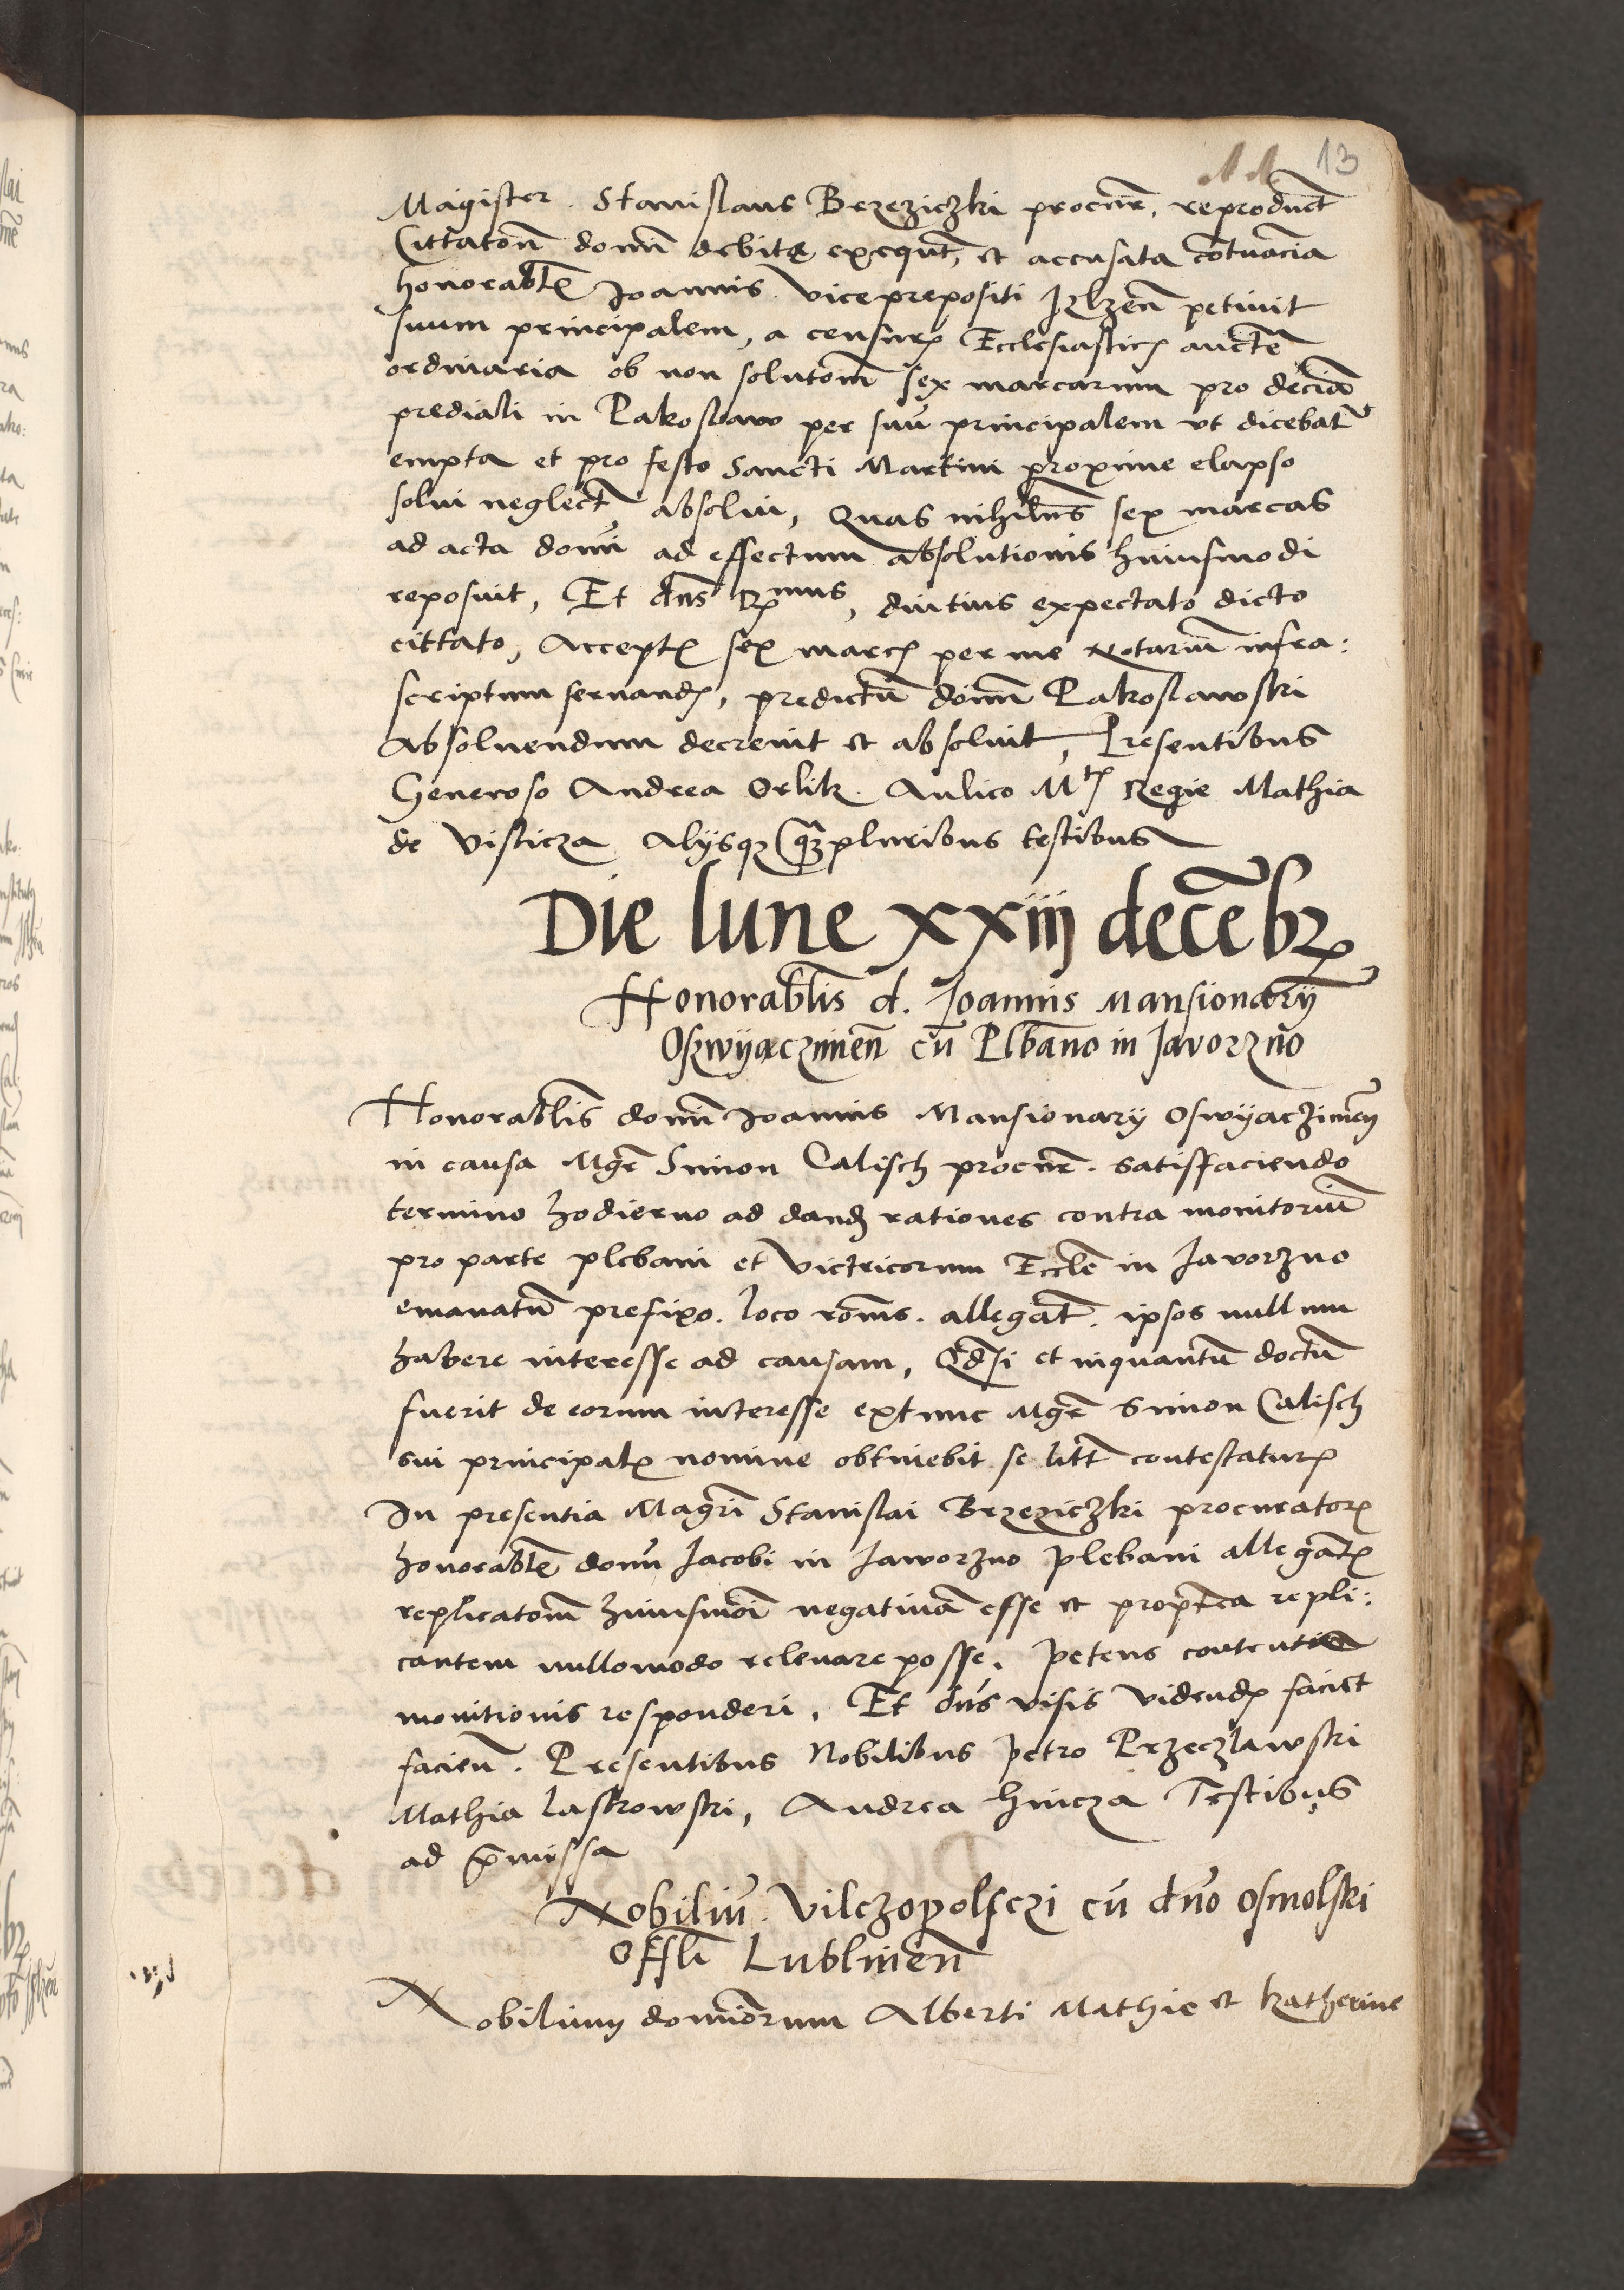 11 13
Magister Stanislaus Brzeziczki procur̄, reproduct̄
Cittatōn domī debite exequt̄, et accusata cōtuācia
honorabl̄ Joannis viceprepositi Jlzeñ petiuit
suum principalem, a censuris Ecclesiasticis auctē
ordinaria ob non solutōm sex marcarum pro decīa
prediali in Pakoslaw per suū principalem vt dicebat
empta et pro festo Sancti Martini proxime elapso
solui neglect̄, absolui, Quas nihil'ns sex marcas
ad acta domī ad effectum absolutionis huiusmodi
reposuit, Et dn̄s Rmus, diutius expectato dicto
cittato, Acceptis sex marcis per me Notariū infra:
scriptum seruand, predictū dōm̄ Pakoslawski
Absoluendum decreuit et absoluit, Presentibus
Generoso Andrea Orlik Aulico Mtis Regie Mathia
de Visticza Alijsqȝ q̄pluribus testibus
Die lune xxiij decēbr
Honorabl̄is d. Joannis Mansionarij
Oswyaczimeñ cū Pl̄bano in Javorzno
Honorabl̄is domī Joannis Mansionarij Oswyaczimeñ
in causa Mgr̄ Simon Calisch procur̄. satisfaciendo
termino hodierno ad dand rationes contra monitoriū
pro parte plebani et Victricorum Eccl̄e in Javorzno
emanatū prefixo. loco rōnis. allegat̄. ipsos nullum
habere interesse ad causam, Qd si et inquantū doctū
fuerit de eorum interesse extunc Mgr̄ Simon Calisch
sui principalis nomine obtinebit se litt̄ contestatur
In presentia Magr̄i Stanislai Brzeziczki procurator
honorabl̄ domī Jacobi in Jaworzno plebani allegant̄
replicatōm huiusmoī negatiuā esse et propt̄ea repli:
cantem nullomodo releuare posse, petens contentis
monitionis responderi, Et dn̄s visis videnď faciet
facieñ. Presentibus Nobilibus Petro Przeczlawski
Mathia Laskowski, Andrea Hincza Testibus
ad p̄missa
Nobiliū Vilczopolsczi cū dn̄o Osmolski
Offlī Lublineñ
Nobilium domiōrum Alberti Mathie et Katherine